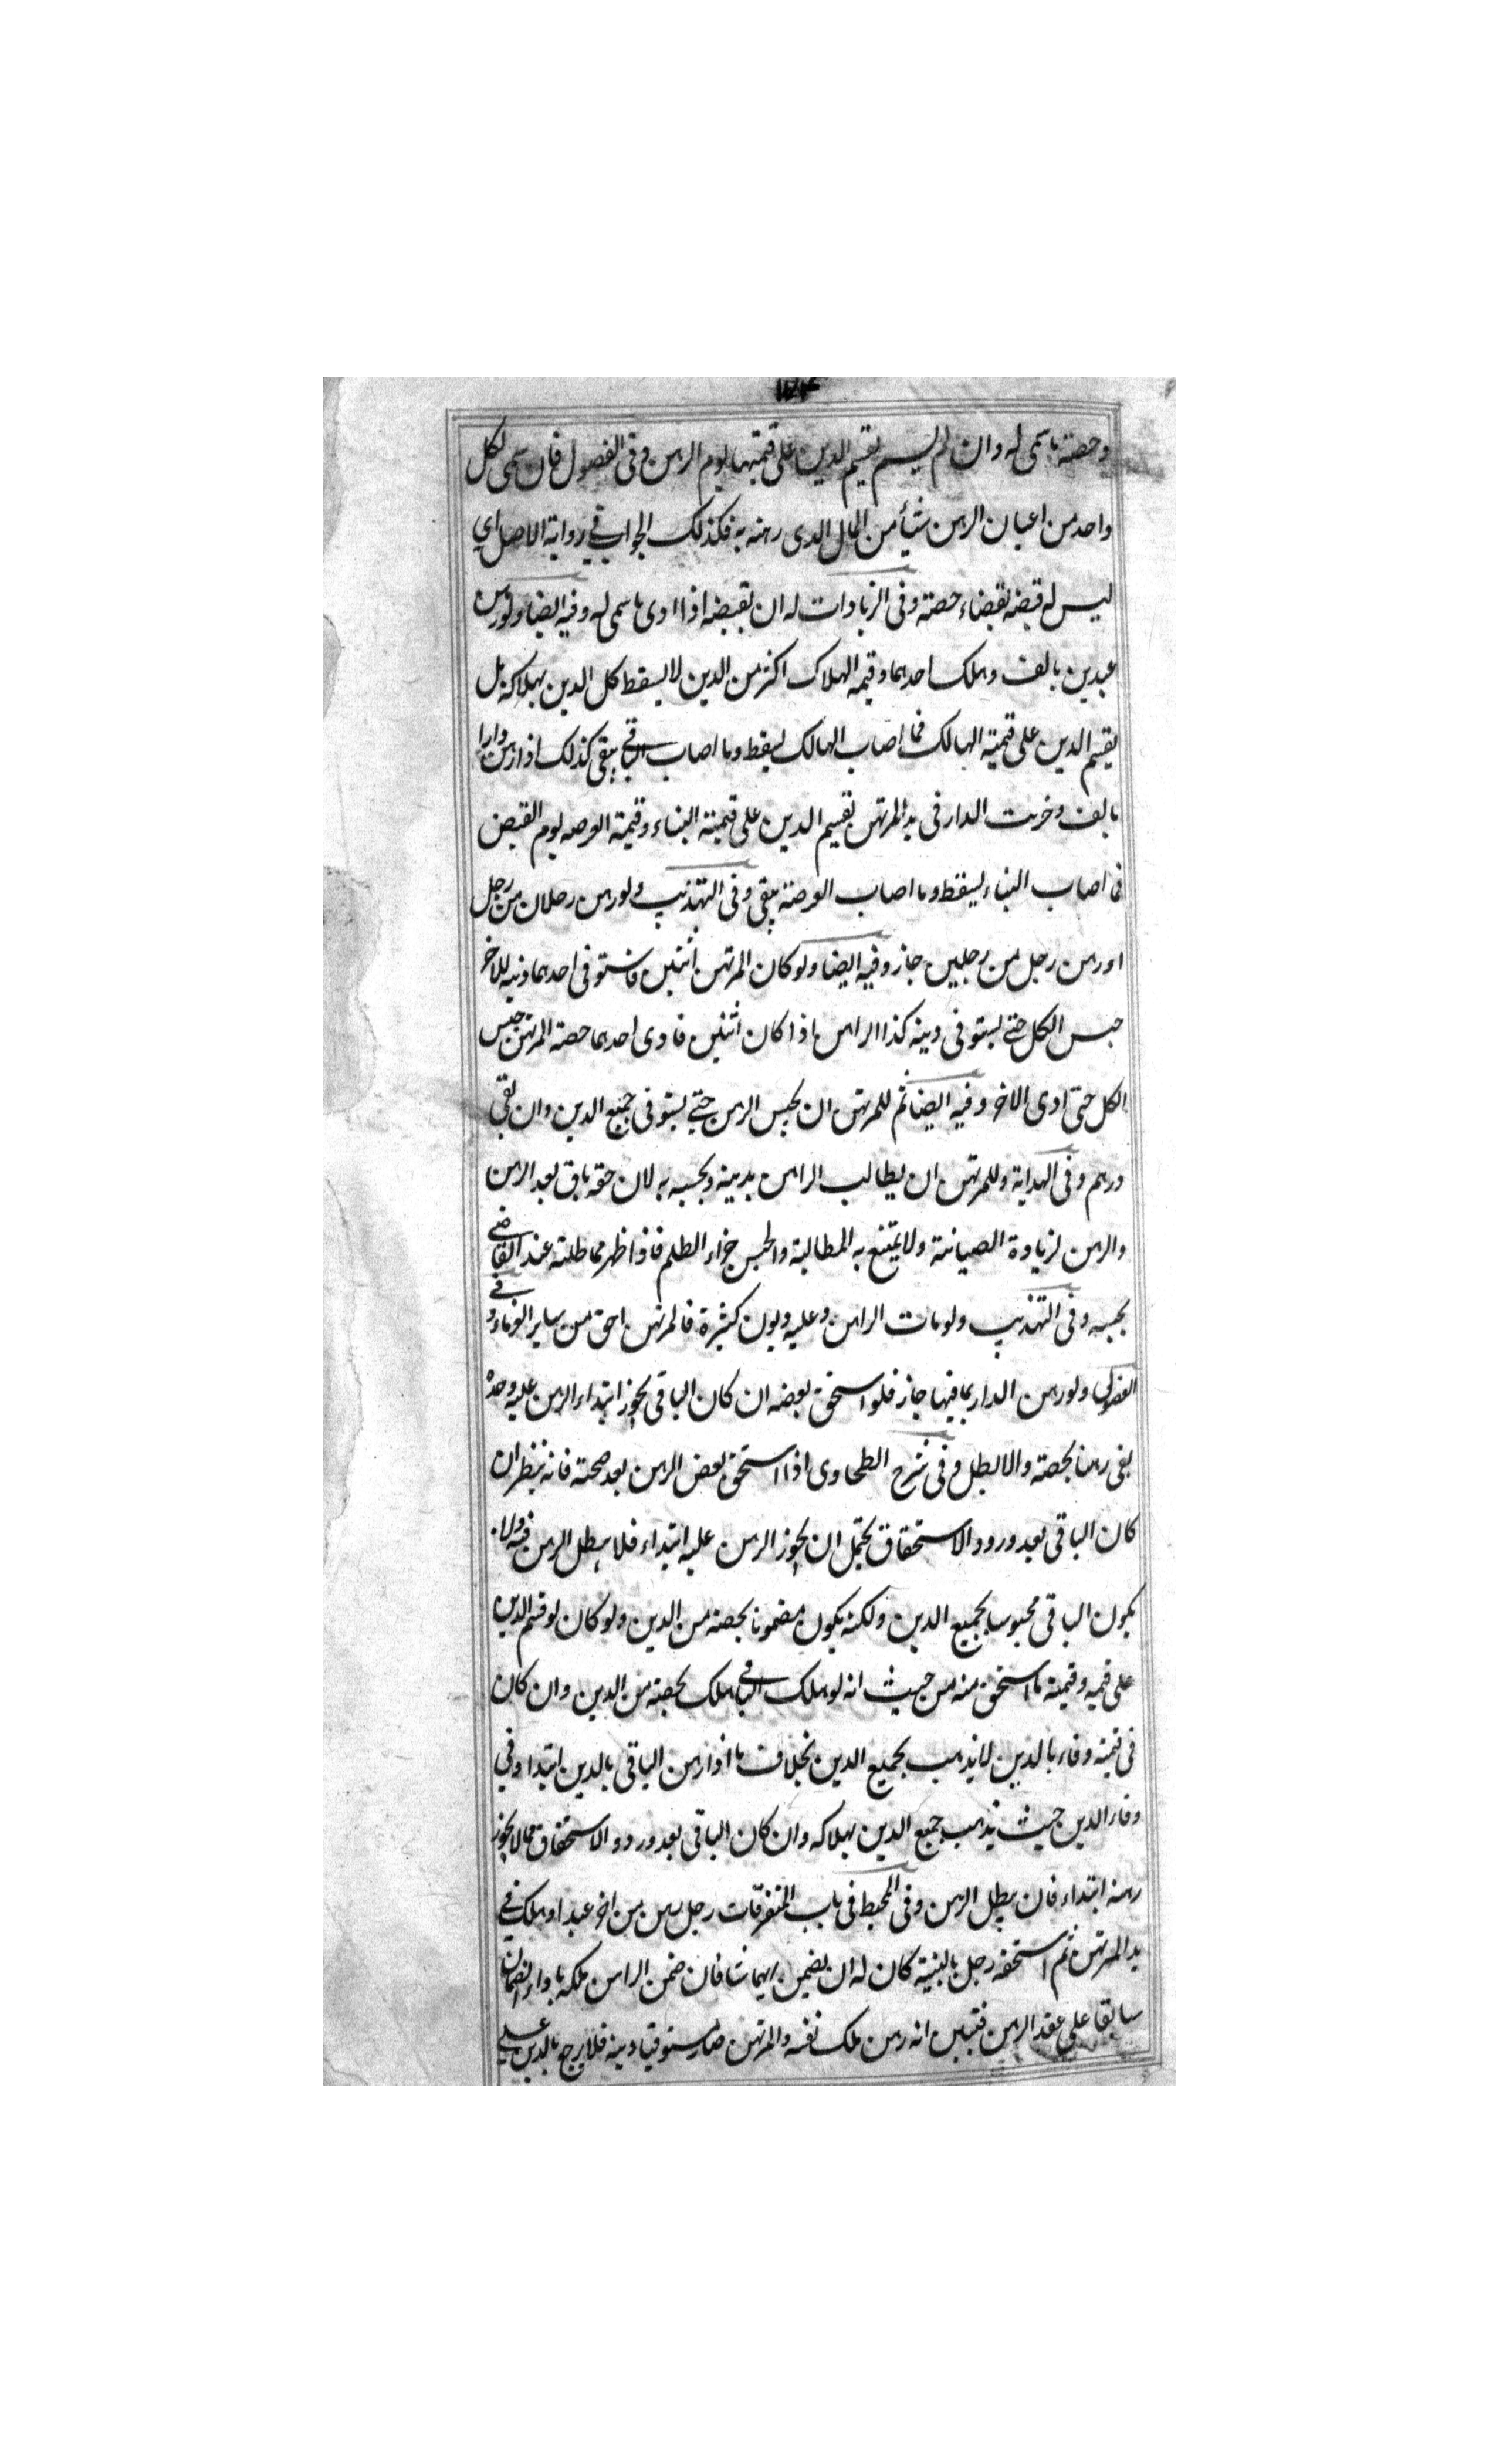 وحصته ما سمى له وان لم يسم يقسم الدين على قيمتها يوم الرهن وفى الفصول فان سمى لكل
واحد من اعيان الرهن شيأ من المال الذى رهنه به فكذلك الجواب في رواية الاصل اي
ليس له قبضه بقضاء حصته وفى الزيادات له ان يقبضه اذا ادى ما سمى له وفيه ايضا ولو رهن
عبدين بالف وهلك احدهما وقيمة الهلاك اكثر من الدين لا يسقط كل الدين بهلاكه بل
يقسم الدين على قيمته الهالك فما اصاب الهالك يسقط وما اصاب الباقي يبقى كذلك اذا رهن دارا
بالف وخربت الدار فى يد المرتهن يقسم الدين على قيمته البناء وقيمة العرصه يوم القبض
فما اصاب البناء يسقط وما اصاب العرصة يبقى وفى التهذيب ولو رهن رجلان من رجل
او رهن رجل من رجلين جاز وفيه ايضا ولو كان المرتهن اثنين فاستوفى احدهما دينه للاخر
حبس الكل حتى يستوفى دينه كذا الراهن اذا كان اثنين فادى احدهما حصته المرتهن حبس
الكل حتى ادى الاخر وفيه ايضا ثم للمرتهن ان يحبس الرهن حتى يستوفى جميع الدين وان بقى
درهم وفى الهداية وللمرتهن ان يطالب الراهن بدينه ويحبسه به لان حقه باق بعد الرهن
والرهن لزيادة الصيانة ولا يمتنع به المطالبة والحبس جزاء الظلم فاذا ظهر مماطلته عند القاضى
يحبسه وفى التهذيب ولو مات الراهن وعليه ديون كثيرة فالمرتهن احق من ساير الغرماء وفي
الفصولى ولو رهن الدار بما فيها جاز فلو استحق بعضه ان كان الباقى يجوز ابتداء الرهن عليه وحده
بقى رهنا بحصته والا بطل وفى شرح الطحاوى اذا استحق بعض الرهن بعد صحته فانه ينظر ان
كان الباقى بعد ورود الاستحقاق يحتمل ان يجوز الرهن عليه ابتداء فلا يبطل الرهن فيه ولا
يكون الباقى محبوسا بجميع الدين ولكنه يكون مضمونا بحصته من الدين ولو كان لو قسم الدين
على قيمه وقيمته ما استحق منه من حيث انه لو هلك الباقي هلك بحصته من الدين وان كان
فى قيمته وفاء بالدين لا يذهب بجميع الدين بخلاف ما اذا رهن الباقى بالدين ابتدا وفي
وفاء الدين حيث يذهب جميع الدين بهلاكه وان كان الباقى بعد ورود الاستحقاق مما لا يجوز
رهنه ابتداء فان يبطل الرهن وفى المحيط فى باب المتفرقات رجل رهن من اخر عبدا وهلك في
يد المرتهن ثم استحقه رجل بالبينة كان له ان يضمن ايهما شا فان ضمن الراهن ملكه باداء الضمان
سابقا على عقد الرهن فتبين انه رهن ملك نفسه والمرتهن صار مستوفيا دينه فلا يرجع بالدين على